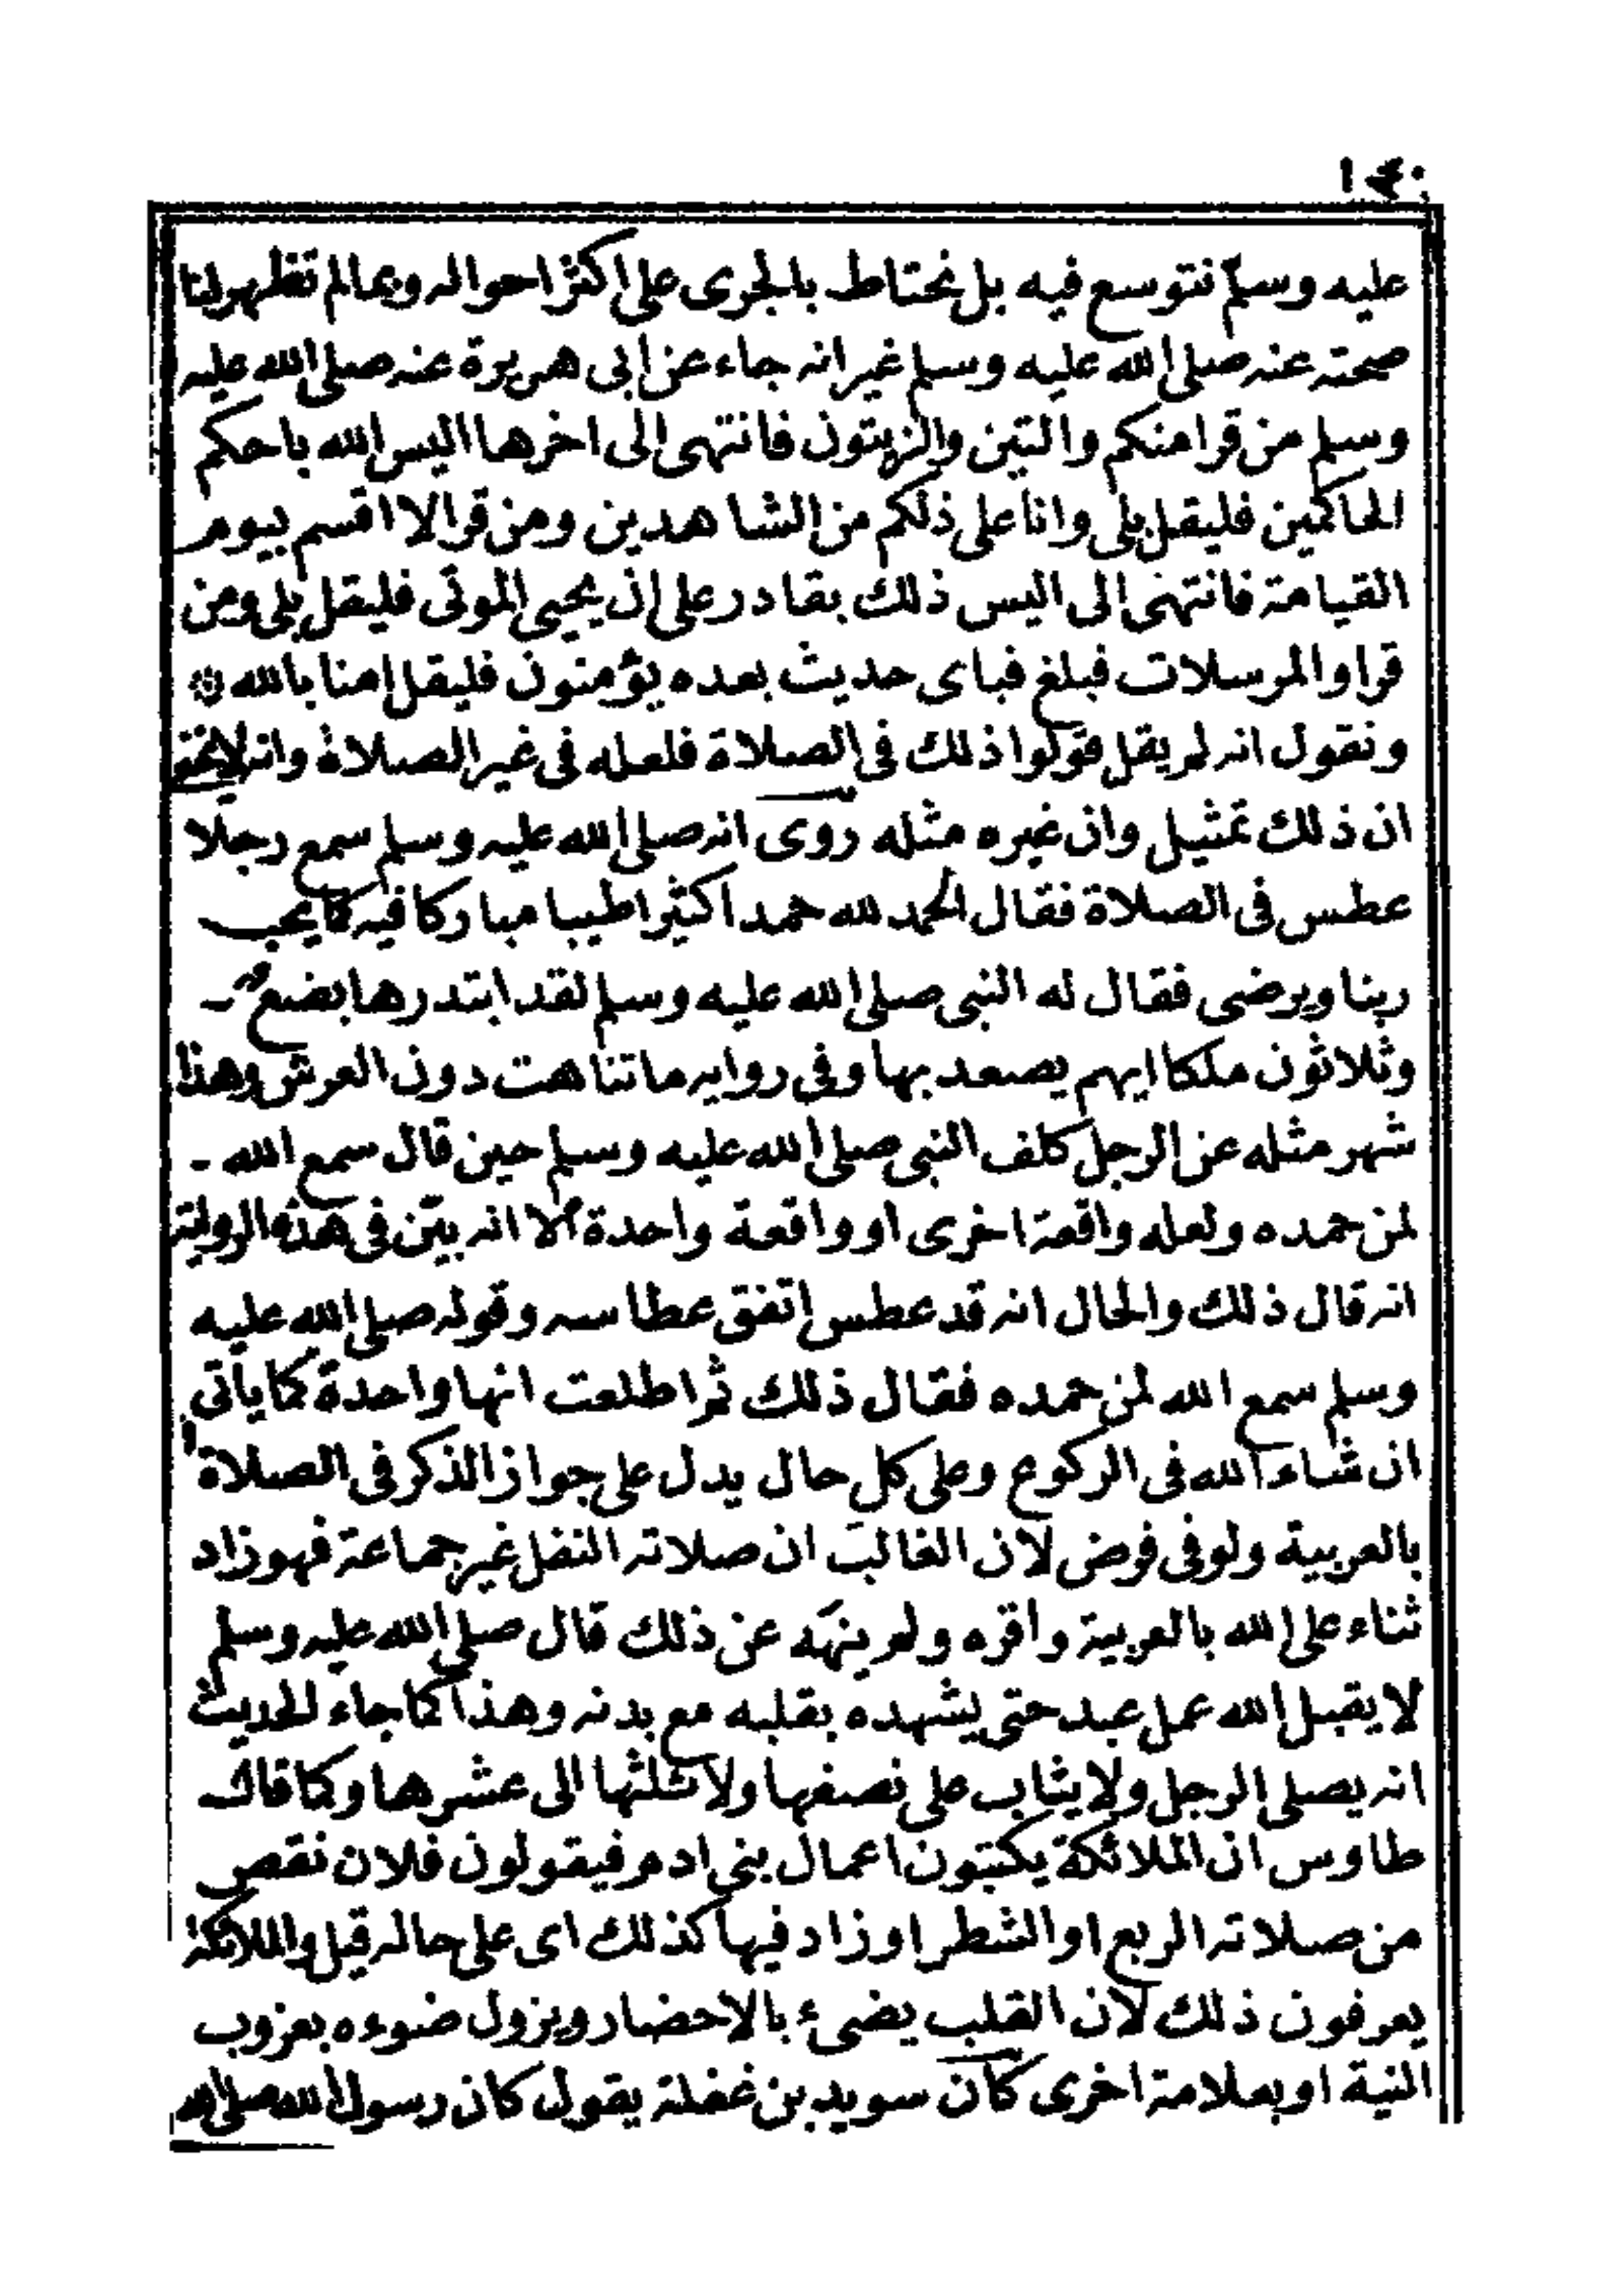 ١٤٠
عليه وسلم نتوسع فيه بل نحتاط بالجرى على اكثر احواله وبما لم تظهر لنا
صحته عنه صلى الله عليه وسلم غير انه جاء عن ابى هريرة عنه صلى الله عليه
وسلم من قرا منكم والتين والزيتون فانتهى الى اخرها اليس الله باحكم
الحاكمين فليقل بلى وانا على ذلكم من الشاهدين ومن قرا لا اقسم بيوم
القيامة فانتهى الى اليس ذلك بقادر على ان يحيى الموتى فليقل بلى ومن
قرا والمرسلات فبلغ فباى حديث بعده يؤمنون فليقل امنا بالله
ونقول انه لم يقل قولوا ذلك فى الصلاة فلعله فى غير الصلاة وانه
ان ذلك تمثيل وان غيره مثله روى انه صلى الله عليه وسلم سمع رجلا
عطس فى الصلاة فقال الحمد لله حمدا كثيرا طيبا مباركا فيه كما يحب
ربنا ويرضى فقال له النبى صلى الله عليه وسلم لقد ابتدرها بضع
وثلاثون ملكا ايهم يصعد بها وفى روايه ما تناهت دون العرش وهذا
شهر مثله عن الرجل خلف النبى صلى الله عليه وسلم حين قال سمع الله
لمن حمده ولعله واقعة اخرى او واقعة واحدة الا انه بيّن فى هذه الرواية
انه قال ذلك والحال انه قد عطس اتفق عطاسه وقوله صلى الله عليه
وسلم سمع الله لمن حمده فقال ذلك ثم اطلعت انها واحدة كما يأتى
ان شاء الله فى الركوع وعلى كل حال يدل على جواز الذكر فى الصلاة
بالعربية ولو فى فرض لان الغالب ان صلاته النفل غير جماعة فهو زاد
ثناء على الله بالعربية واقره ولم ينهه عن ذلك قال صلى الله عليه وسلم
لا يقبل الله عمل عبد حتى يشهده بقلبه مع بدنه وهذا كما جاء الحديث
انه يصلى الرجل ولا يثاب على نصفها ولا ثلثها الى عشرها وكما قال
طاوس ان الملائكة يكتبون اعمال بنى ادم فيقولون فلان نقص
من صلاته الربع او الشطر او زاد فيها كذلك اى على حاله قيل والملائكة
يعرفون ذلك لان القلب يضىء بالاحضار ويزول ضوءه بعزوب
النية او بعلامة اخرى كان سويد بن غفلة يقول كان رسول الله صلى الله